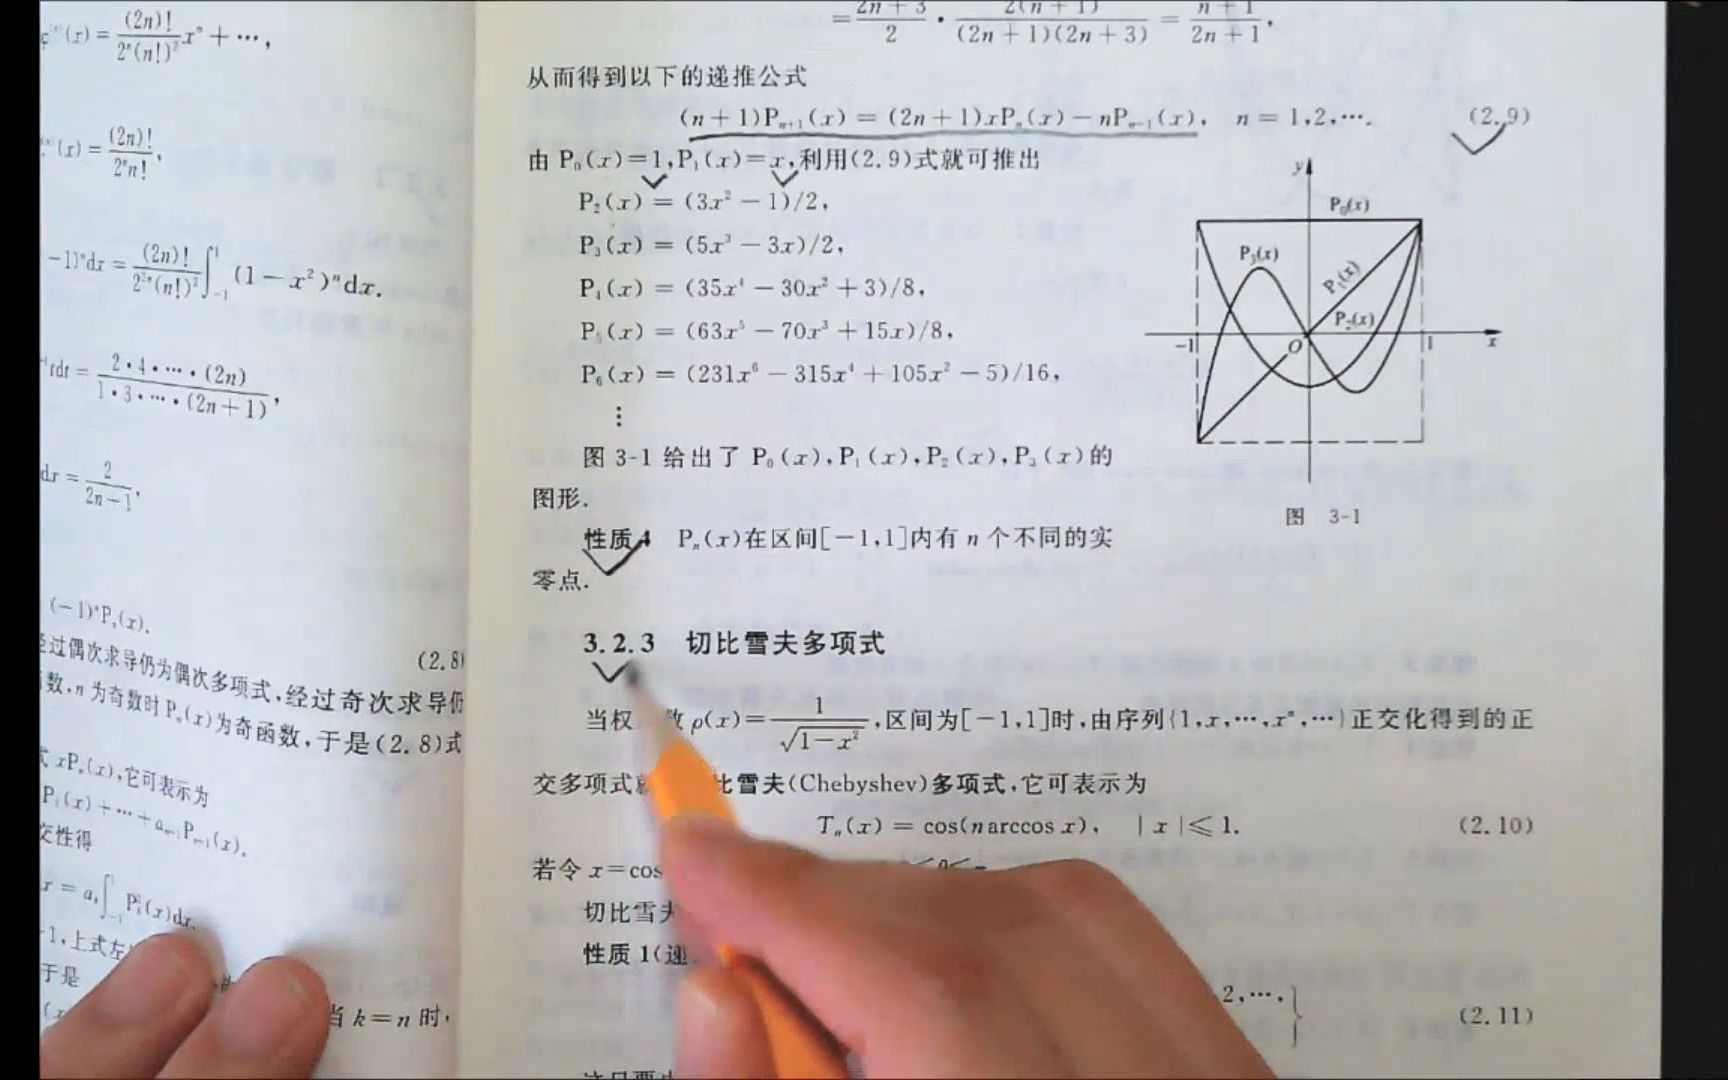 (x) = (2n)!/2ⁿ(n!)² xⁿ + ⋯,
(x) = (2n)!/2ⁿn!,
-1)ⁿdx = (2n)!/2²ⁿ(n!)² ∫₋₁¹ (1-x²)ⁿdx.
tdt = 2·4·⋯·(2n)/1·3·⋯·(2n+1),
(-1)ⁿPₙ(x).
(2.8)
经过偶次求导仍为偶次多项式,经过奇次求导仍
数,n为奇数时Pₙ(x)为奇函数,于是(2.8)式
式 xPₙ(x),它可表示为
P₁(x)+⋯+aₙ₊₁Pₙ₊₁(x).
交性得
-1,上式左
于是
当 k=n 时,
= 2n+3/2 · 2(n+1)/(2n+1)(2n+3) = n+1/2n+1,
从而得到以下的递推公式
(n+1)Pₙ₊₁(x) = (2n+1)xPₙ(x)-nPₙ₋₁(x), n=1,2,⋯. (2.9)
由 P₀(x)=1,P₁(x)=x,利用(2.9)式就可推出
P₂(x) = (3x²-1)/2,
P₃(x) = (5x³-3x)/2,
P₄(x) = (35x⁴-30x²+3)/8,
P₅(x) = (63x⁵-70x³+15x)/8,
P₆(x) = (231x⁶-315x⁴+105x²-5)/16,
⋮
图 3-1 给出了 P₀(x),P₁(x),P₂(x),P₃(x)的
图形.
性质 4 Pₙ(x)在区间[-1,1]内有 n 个不同的实
零点.
y
P₀(x)
P₃(x)
P₁(x)
P₂(x)
-1
O
1
x
图 3-1
3.2.3 切比雪夫多项式
当权 数 ρ(x)=1/√(1-x²),区间为[-1,1]时,由序列{1,x,⋯,xⁿ,⋯}正交化得到的正
交多项式就 比雪夫(Chebyshev)多项式,它可表示为
Tₙ(x) = cos(n arccos x), |x|≤1. (2.10)
若令 x=cos
切比雪夫
性质 1(递
2,⋯, } (2.11)